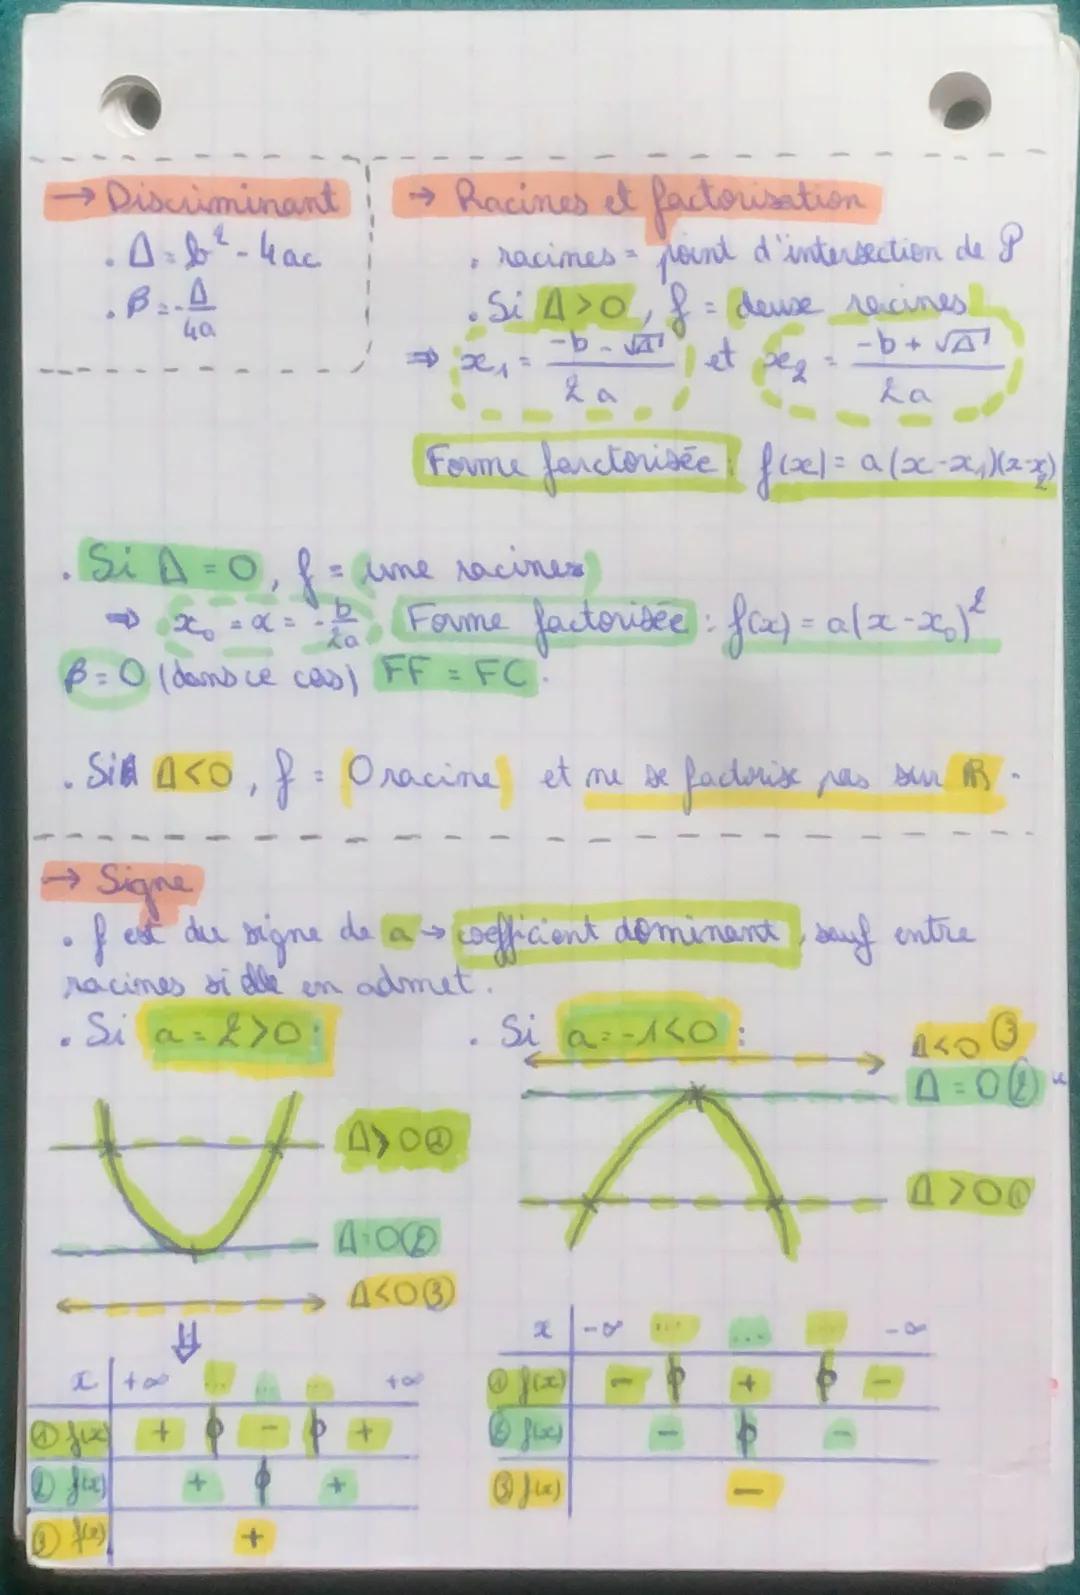 → Discriminant
. Δ = b² - 4ac
. β = -Δ/4a
→ Racines et factorisation
. racines = point d'intersection de P
. Si Δ > 0, f = deux racines
⇒ x₁ = (-b - √Δ)/2a et x₂ = (-b + √Δ)/2a
Forme farctorisée : f(x) = a(x-x₁)(x-x₂)
. Si Δ = 0, f = une racines
⇒ x₀ = α = -b/2a Forme factorisée : f(x) = a(x-x₀)²
β = 0 (dans ce cas) FF = FC.
. Si Δ<0, f = 0 racine et ne se factorise pas sur ℝ.
→ Signe
. f est du signe de a → coefficient dominant, sauf entre
racines si elle en admet.
. Si a = 2 > 0 :
Δ > 0 ①
Δ = 0 ②
Δ < 0 ③
x +∞ ... ... ... +∞
① f(x) + 0 - 0 +
② f(x) + 0 +
③ f(x) +
. Si a = -1 < 0 :
Δ < 0 ③
Δ = 0 ②
Δ > 0 ①
x -∞ ... ... ... -∞
① f(x) - 0 + 0 -
② f(x) - 0 -
③ f(x) -